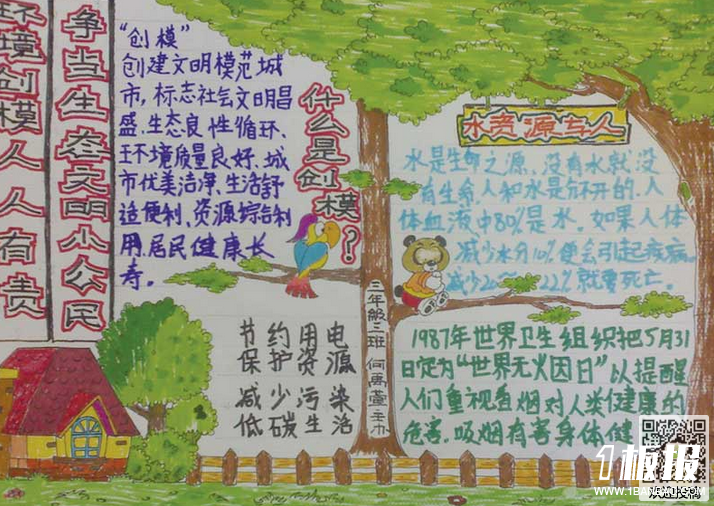 环境创模人人有责
争当生态文明小公民
“创模”
创建文明模范城
市,标志社会文明昌
盛、生态良性循环、
环境质量良好、城
市优美洁净、生活舒
适便利、资源综合利
用、居民健康长
寿。
什么是创模？
水资源与人
水是生命之源，没有水就没
有生命，人和水是分不开的，人
体血液中80%是水。如果人体
减少水分10%便会引起疾病，
22%就要死亡。
三年级三班
节约用电
保护资源
减少污染
低碳生活
1987年世界卫生组织把5月31
日定为“世界无火因日”以提醒
人们重视香烟对人类健康的
危害。吸烟有害身体健
1板报
WWW.1BANBAO.COM
欢迎投稿